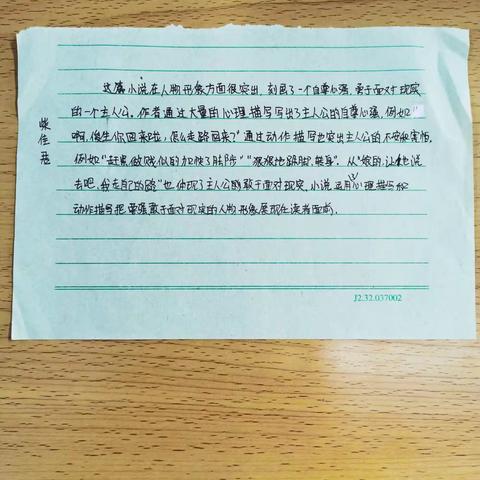 柴佳慧
这篇小说在人物形象方面很突出,刻画了一个自尊心强,勇于面对现实
的一个主人公。作者通过大量的心理描写写出了主人公的自尊心强,例如"
啊,俊生你回来啦,怎么走路回来?"通过动作描写也突出主人公的不安和害怕。
例如"赶紧做戏似的加快了脚步""狠狠地跺脚,转身"。从"娘的,让他说
去吧,我走自己的路"也体现了主人公敢于面对现实,小说运用心理描写和
动作描写把坚强敢于面对现实的人物形象展现在读者面前。
J2.32.037002